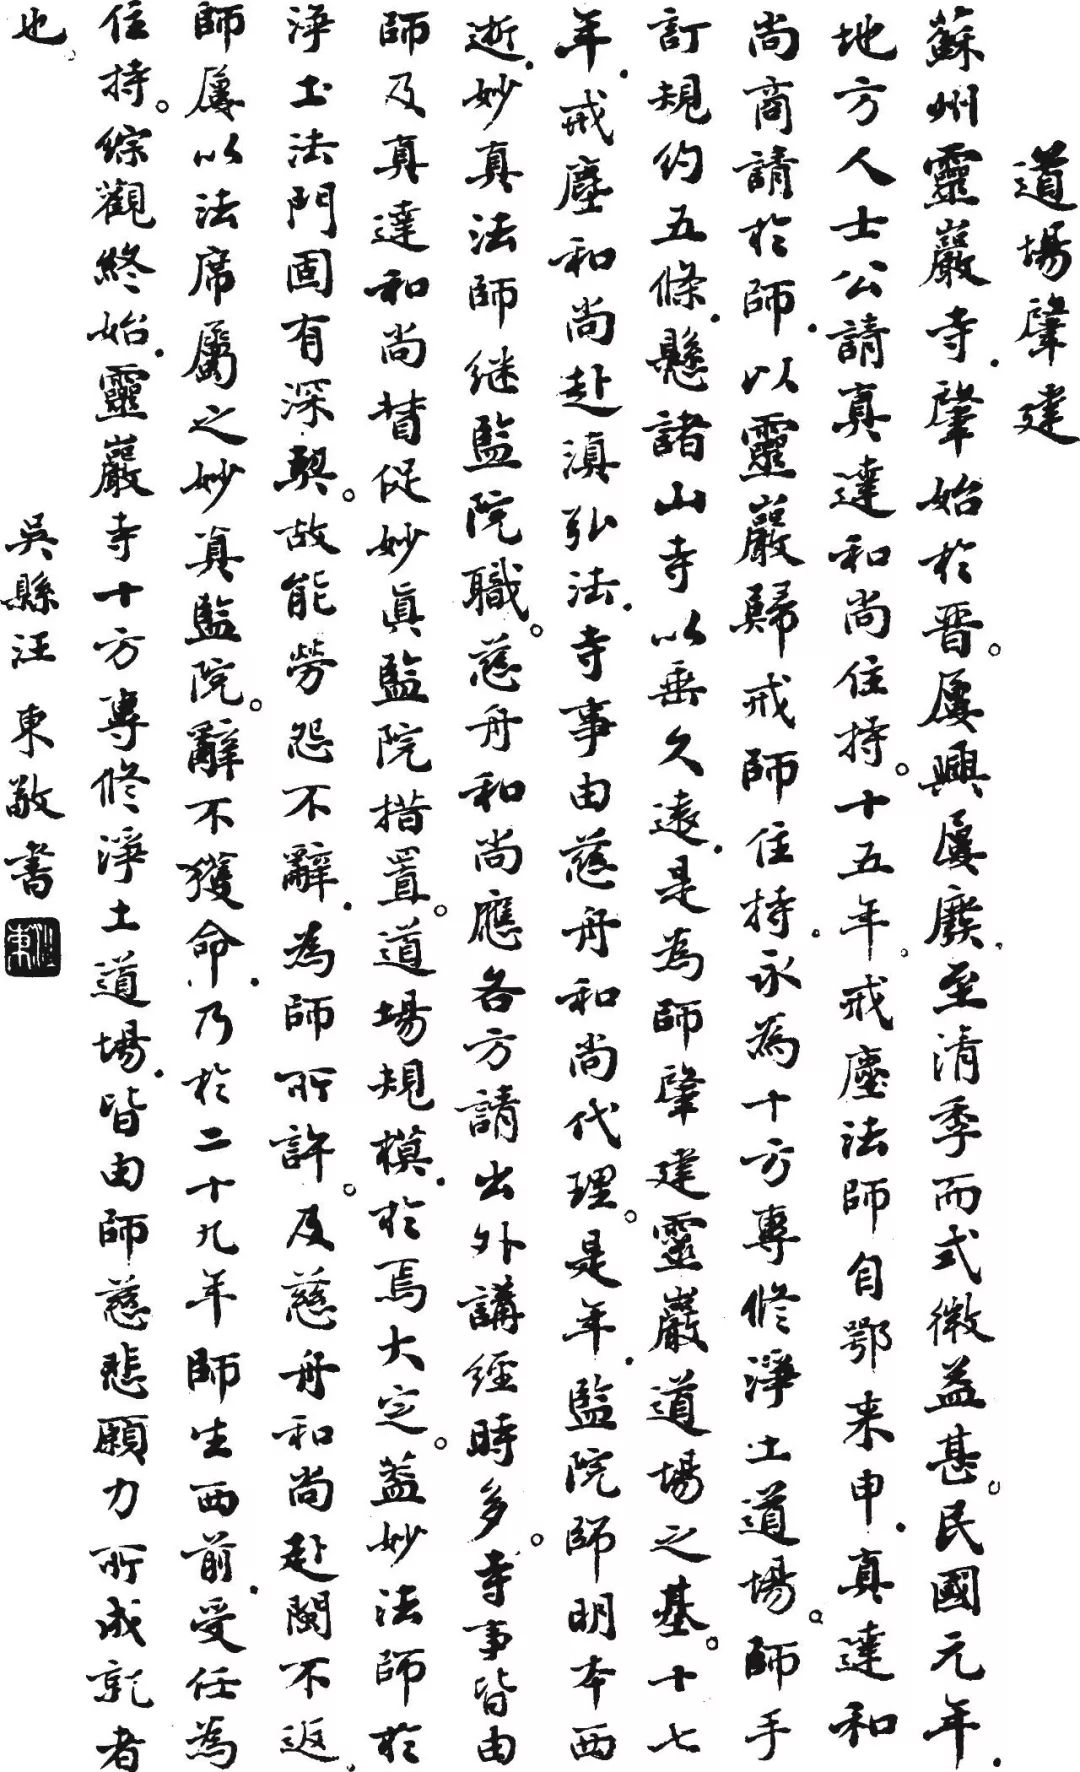 道場肇建
蘇州靈巖寺．肇始於晋。屢興屢廢．至清季而式微益甚。民國元年．
地方人士公請真達和尚住持。十五年。戒塵法師自鄂来申．真達和
尚商請於師．以靈巖歸戒師住持．永為十方專修淨土道場。師手
訂規約五條．懸諸山寺以垂久遠．是為師肇建靈巖道場之基。十七
年．戒塵和尚赴滇弘法．寺事由慈舟和尚代理。是年．監院師明本西
逝．妙真法師继監院職。慈舟和尚應各方請出外講經時多。寺事皆由
師及真達和尚督促妙眞監院措置。道場規模．於焉大定。蓋妙法師於
淨土法門固有深契。故能勞怨不辭．為師所許。及慈舟和尚赴閩不返．
師屢以法席屬之妙真監院。辭不獲命．乃於二十九年師生西前．受任為
住持。綜觀終始．靈巖寺十方專修淨土道場．皆由師慈悲願力所成就者
也。
吳縣汪東敬書
汪東